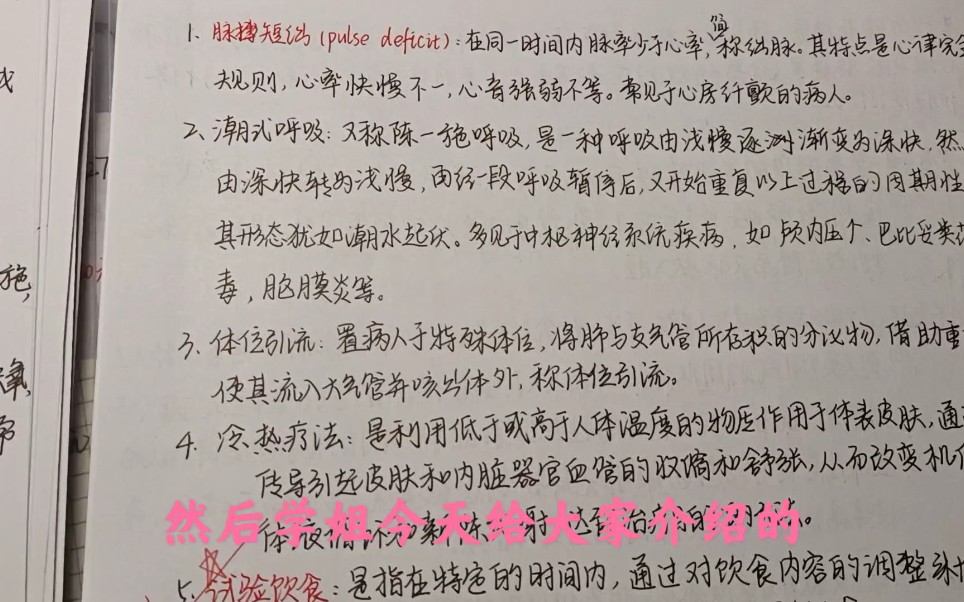 1、脉搏短绌(pulse deficit):在同一时间内脉率少于心率,简称绌脉。其特点是心律完
规则,心率快慢不一,心音强弱不等。常见于心房纤颤的病人。
2、潮式呼吸:又称陈一施呼吸,是一种呼吸由浅慢逐渐变为深快,然
由深快转为浅慢,再经一段呼吸暂停后,又开始重复以上过程的周期性
其形态犹如潮水起伏。多见于中枢神经系统疾病,如颅内压个、巴比妥类
毒,脑膜炎等。
3、体位引流:置病人于特殊体位,将肺与支气管所存积的分泌物,借助重
使其流入大气管并咳出体外,称体位引流。
4、冷热疗法:是利用低于或高于人体温度的物质作用于体表皮肤,通
传导引起皮肤和内脏器官血管的收缩和舒张,从而改变机
然后学姐今天给大家介绍的
5、试验饮食:是指在特定的时间内,通过对饮食内容的调整